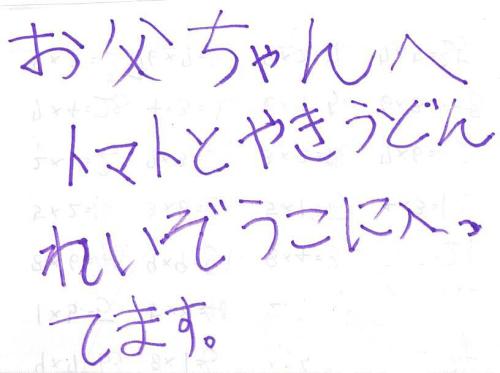 お父ちゃんへ
トマトとやきうどん
れいぞうこに入っ
てます。